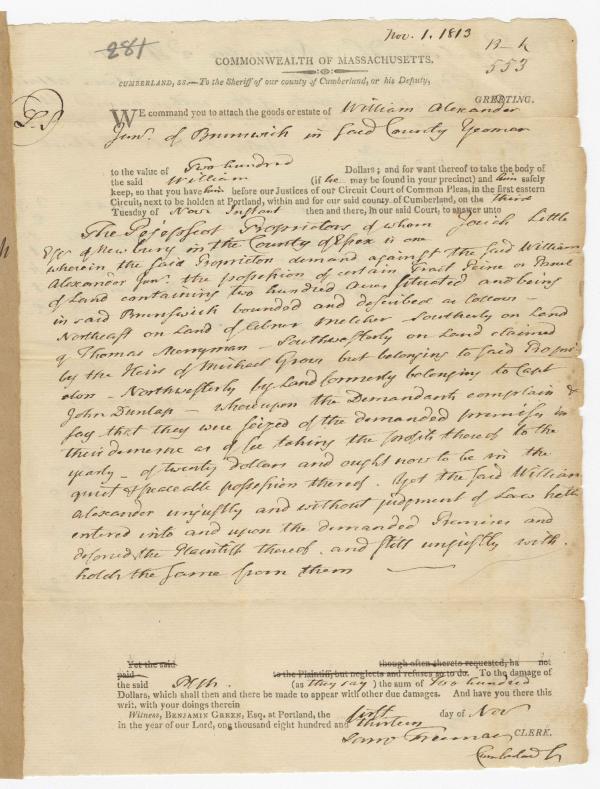 281
Nov. 1. 1813
553
COMMONWEALTH OF MASSACHUSETTS.
CUMBERLAND, SS.—To the Sheriff of our county of Cumberland, or his Deputy,
GREETING.
WE command you to attach the goods or estate of William Alexander
Junr. of Brunswick in said County Yeoman
to the value of Two hundred Dollars; and for want thereof to take the body of
the said William (if he may be found in your precinct) and him safely
keep, so that you have him before our Justices of our Circuit Court of Common Pleas, in the first eastern
Circuit, next to be holden at Portland, within and for our said county of Cumberland, on the third
Tuesday of Nov Instant then and there, in our said Court, to answer unto
The Pejepscot Proprietors of whom Josiah Little
Esqr of Newbury in the County of Essex is one
wherein the said Proprietors demand against the said William
Alexander Junr. the possession of certain Tract Piece or Parcel
of Land containing two hundred acres situated and being
in said Brunswick bounded and described as follows –
Northeast on Land of Abner Melcher – Southerly on Land
of Thomas Merryman – Southwesterly on Land claimed
by the Heirs of Michael Grows but belonging to said Propri
etors – Northwesterly by Land formerly belonging to Capt
John Dunlap – whereupon the Demandants complain &
say that they were seized of the demanded premises in
their demesne as of fee taking the profits thereof to the
yearly – of twenty dollars and ought now to be in the
quiet & peaceable possession thereof. Yet the said William
Alexander unjustly and without judgment of Law hath
entered into and upon the demanded Premises and
deforced the Plaintiffs thereof. and still unjustly with.
holds the same from them
Yet the said though often thereto requested, ha not
paid to the Plaintiff, but neglects and refuses so to do. To the damage of
the said (as they say) the sum of two hundred
Dollars, which shall then and there be made to appear with other due damages. And have you there this
writ, with your doings therein
Witness, BENJAMIN GREEN, Esq. at Portland, the first day of Nov
in the year of our Lord, one thousand eight hundred and thirteen
Saml Freeman CLERK.